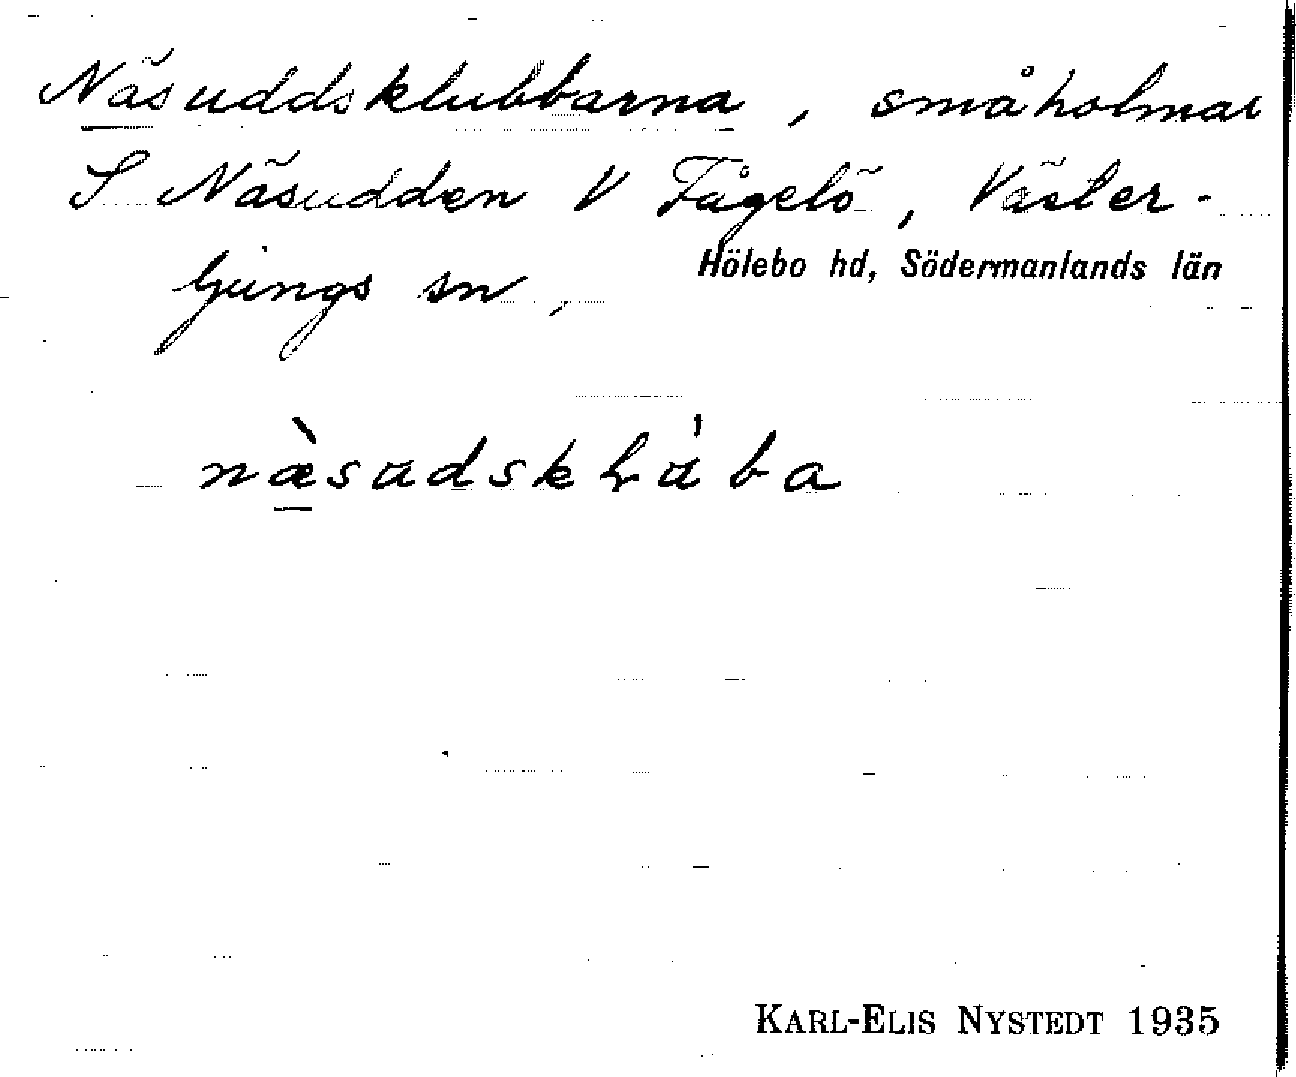 Näsuddsklubbarna, småholmar
S Näsudden V Fågelö, Väster-
ljungs sn,
Hölebo hd, Södermanlands län
næ̀sudskłúba
KARL-ELIS NYSTEDT 1935